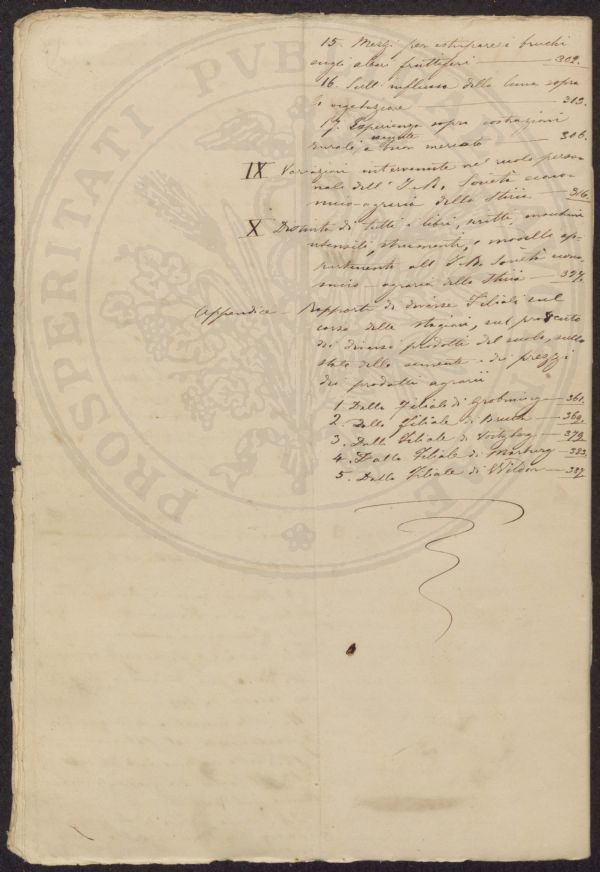 15. Mezzi per estirpare i bruchi
sugli alberi fruttiferi — 302.
16. Sull' influsso della luna sopra
la vegetazione — 313.
17. Esperienze sopra costruzioni
rurali a buon mercato — 316.
IX Variazioni intervenute ne' ruolo perso-
nale dell' I. R. Società econo-
mico-agraria della Stiria — 316.
X Distinta di tutti i libri, scritti, macchine
utensili, strumenti, e modelli ap-
partenenti all' I. R. Società econo-
mico-agraria della Stiria — 327.
Appendice — Rapporti di diverse Filiali sul
corso delle stagioni, sul
dei diversi prodotti del suolo, sullo
stato delle semente e dei prezzi
dei prodotti agrarii
1. Dalla Filiale di Gröbming — 361.
2. Dalla filiale di Bruck — 369.
3. Dalla Filiale di — 379.
4. Dalla Filiale di Marburg — 383.
5. Dalla Filiale di Wildon — 387.
PROSPERITATI PUBLICAE